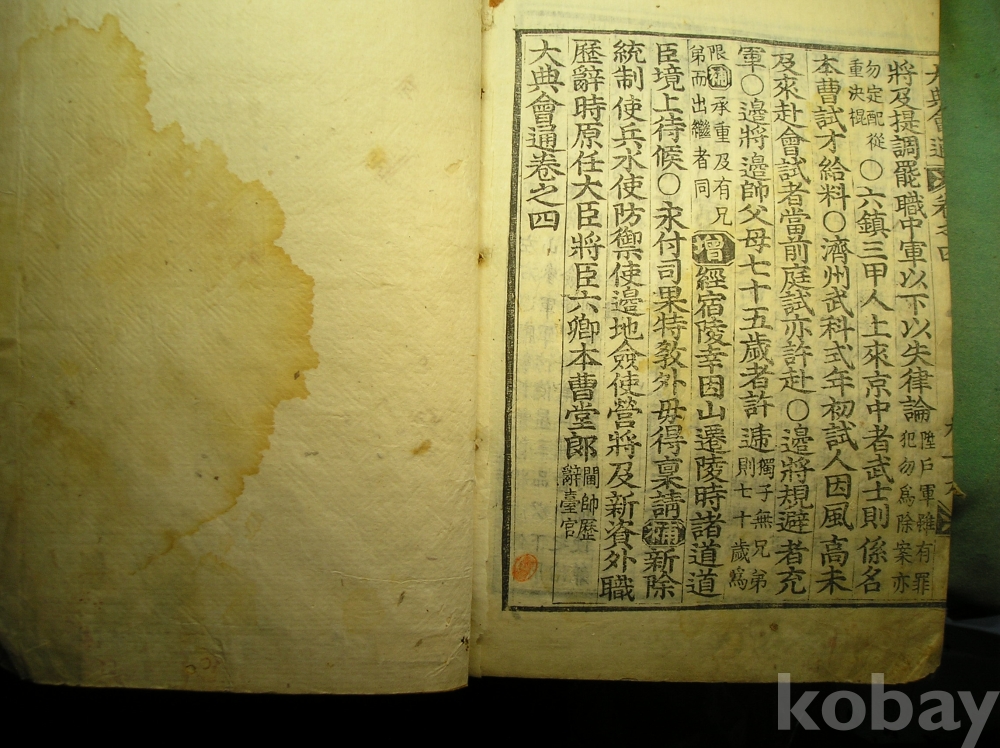 大典會通 卷之四
將及提調罷職中軍以下以失律論陞戶軍雖有罪犯勿爲除案亦
勿定配從重決棍○六鎮三甲人上來京中者武士則係名
本曹試才給料○濟州武科式年初試人因風高未
及來赴會試者當前庭試亦許赴○邊將規避者充
軍○邊將邊師父母七十五歲者許遞獨子無兄弟則七十歲爲
限補承重及有兄弟而出繼者同增經宿陵幸因山遷陵時諸道道
臣境上待候○永付司果特敎外毋得稟請補新除
統制使兵水使防禦使邊地僉使營將及新資外職
歷辭時原任大臣將臣六卿本曹堂郎閫帥歷辭臺官
大典會通卷之四
kobay